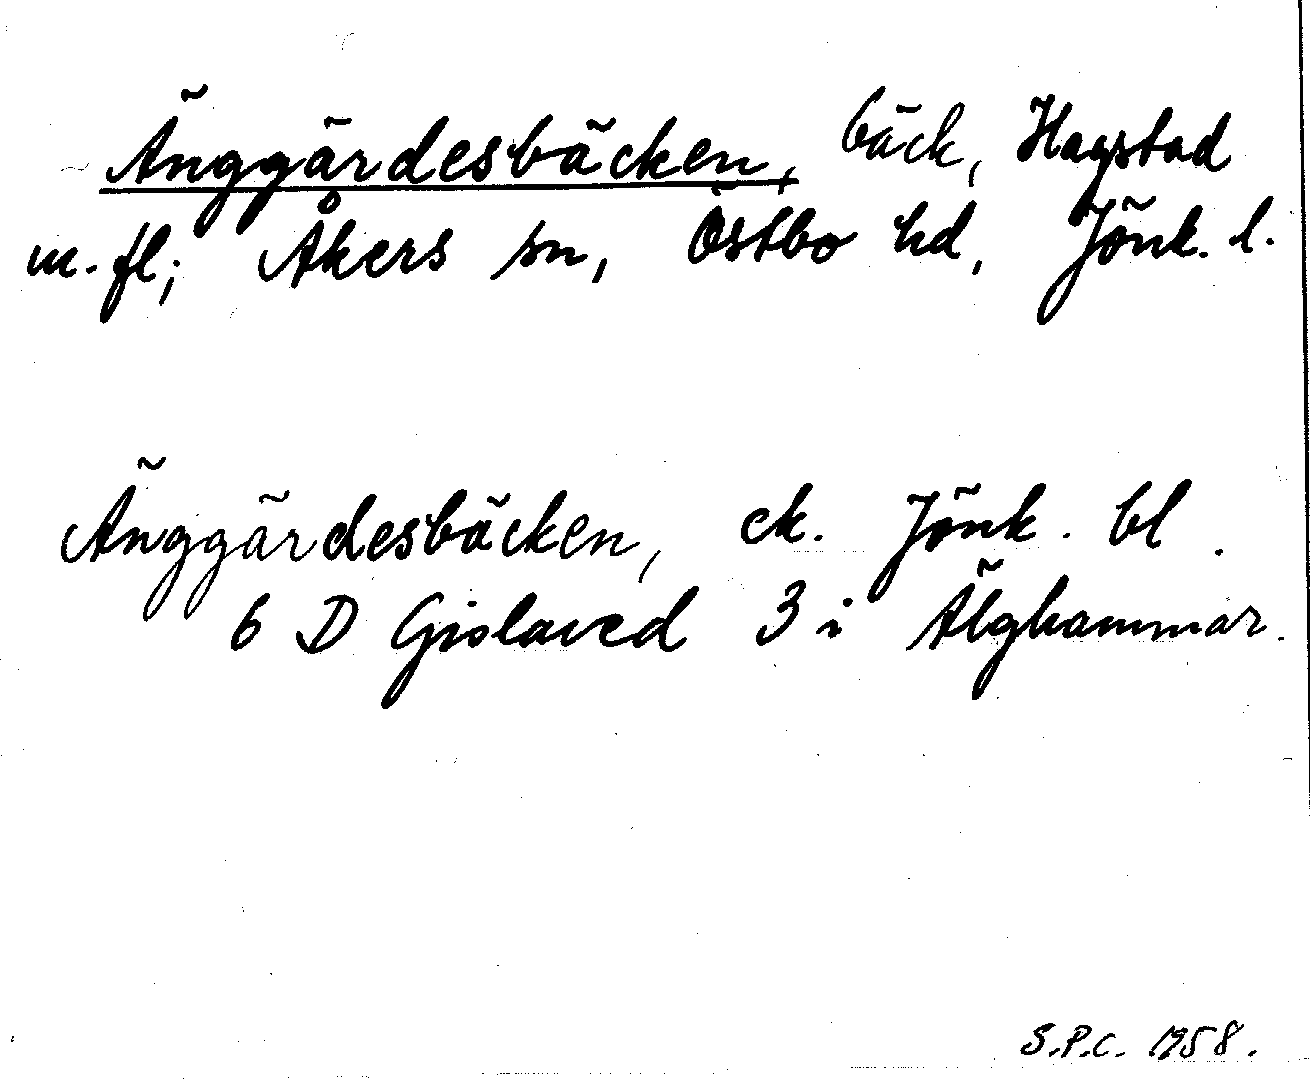 Änggärdesbäcken, bäck, Hagstad
m. fl; Åkers sn, Östbo hd, Jönk. l.
Änggärdesbäcken, ek. Jönk. bl.
6 D Gislaved 3 i Älghammar.
S.P.C. 1958.